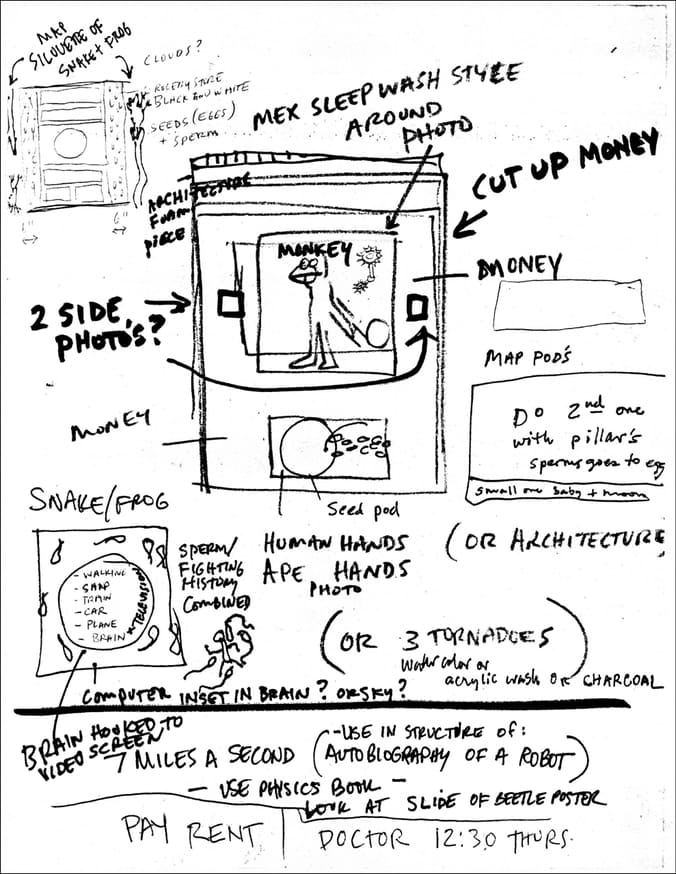 MAP
SILOUETTE OF
SNAKE + FROG
CLOUDS?
BLACK AND WHITE
SEEDS (EGGS)
+ SPERM
1"
6"
MEX SLEEP WASH STYLE
AROUND
PHOTO
ARCHITECTURE
FOAM
PIECE
CUT UP MONEY
MONKEY
MONEY
2 SIDE
PHOTOS?
MAP PODS
MONEY
DO 2nd one
with pillar's
sperms goes to egg
small one baby + moon
Seed pod
SNAKE/FROG
SPERM/
FIGHTING
HISTORY
COMBINED
HUMAN HANDS
APE HANDS
PHOTO
(OR ARCHITECTURE
- WALKING
- SHIP
- TRAIN
- CAR
- PLANE
- BRAIN
TELEVISION
(OR 3 TORNADOES
watercolor or
acrylic wash or CHARCOAL)
COMPUTER INSET IN BRAIN? OR SKY?
BRAIN HOOKED TO
VIDEO SCREEN
7 MILES A SECOND
(-USE IN STRUCTURE OF:
AUTOBIOGRAPHY OF A ROBOT)
- USE PHYSICS BOOK -
LOOK AT SLIDE OF BEETLE POSTER
PAY RENT
DOCTOR 12:30 THURS.